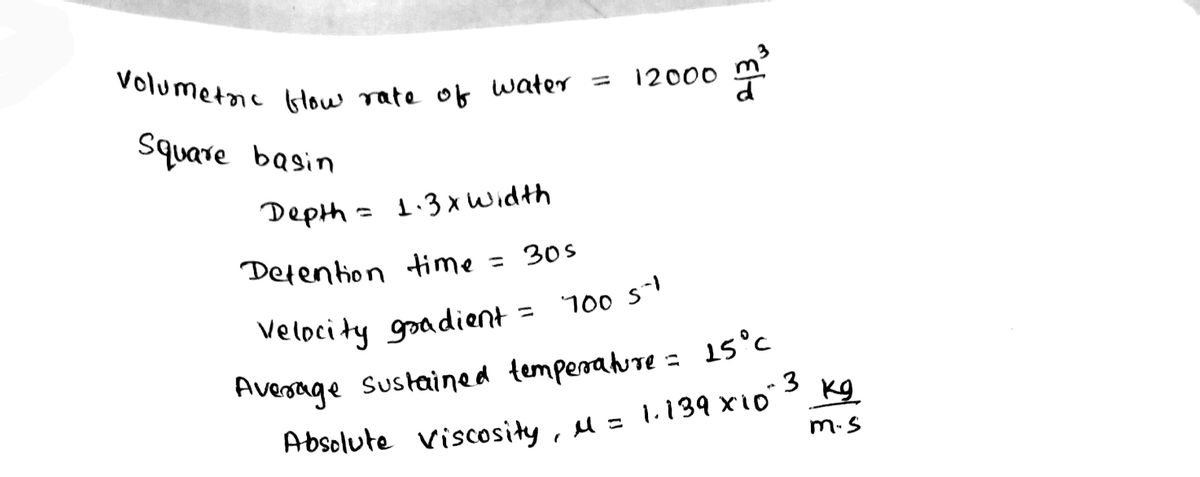 Volumetric flow rate of water = 12000 m³/d
Square basin
Depth = 1.3 x Width
Detention time = 30s
Velocity gradient = 700 s⁻¹
Average sustained temperature = 15°C
Absolute viscosity, μ = 1.139 x 10⁻³ kg/m·s